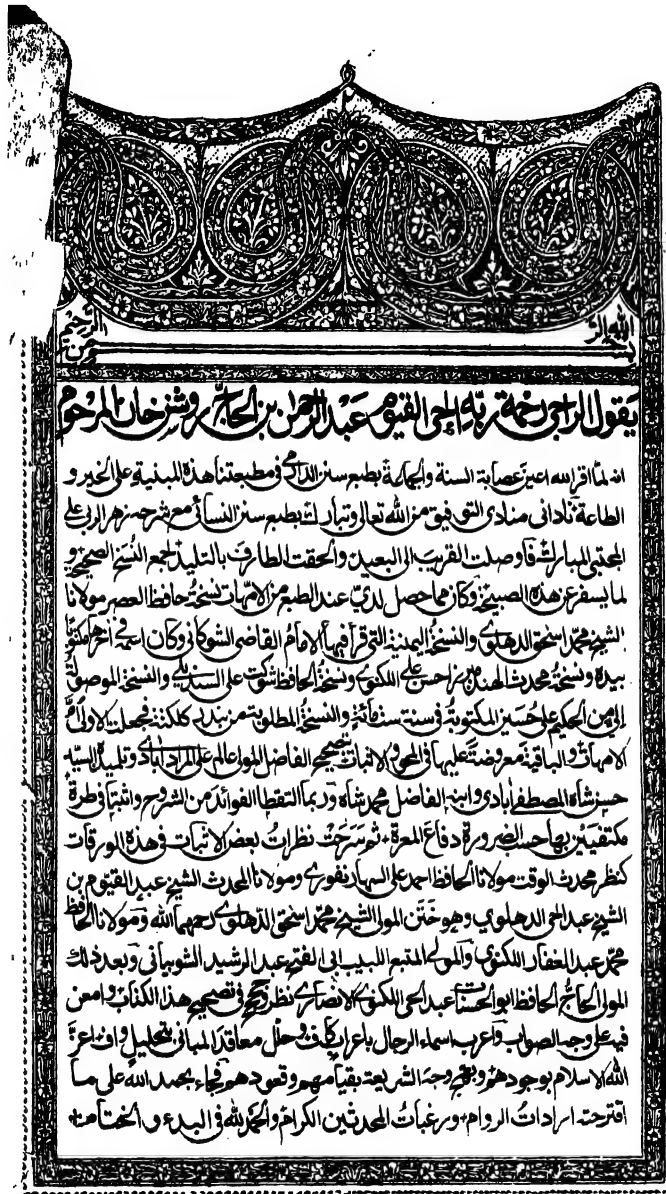 بسم الله الرحمن الرحيم
يقول الراجي رحمة ربه الحي القيوم عبد الرحمن بن الحاج روشن خان المرحوم
انه لما اقر الله اعين عصابة السنة والجماعة بطبع سنن الدارمي في مطبعتنا هذه المبنية على الخير و
الطاعة نادانى منادى التوفيق من الله تعالى وتبارك بطبع سنن النسائى مع شرحه زهر الربى على
المجتبى المبارك فاوصلت القريب الى البعيد والحقت الطارف بالتليد لجمع النسخ الصحيحة و
لما يسفر عن هذه الصبيحة وكان مما حصل لدي عند الطبع من الامهات نسخة حافظ العصر مولانا
الشيخ محمد اسحق الدهلوي والنسخة اليمنية التي قرأ فيها الامام القاضى الشوكانى وكان اسمه في اخرها مكتوبا
بيده ونسخة محدث الهند ميرزا حسن على اللكنوي ونسخة الحافظ شوكت على السنديلي والنسخة الموصولة
الي من الحكيم على حسين المكتوبة في سنة ستمائة والنسخة المطلوبة من بندر كلكته فجعلت الاولى ام
الامهات والباقية معروضة عليها في المحو والاثبات بتصحيح الفاضل المولى عالم على المرادابادي وتلميذه السيد
حسن شاه المصطفابادي وابنه الفاضل محمد شاه وربما التقطا الفوائد من الشروح واثبتا في طرة
مكتفيين بها حسب الضرورة دفاع المعرة ثم سرحت نظرات بعض الاثبات في هذه الورقات
كنظر محدث الوقت مولانا الحافظ احمد على السهارنفوري ومولانا المحدث الشيخ عبد القيوم بن
الشيخ عبد الحي الدهلوي وهو ختن المولى الشيخ محمد اسحق الدهلوي رحمهما الله ومولانا الحافظ
محمد عبد الغفار اللكنوي والمولى المتبع اللبيب ابى الفتح عبد الرشيد الشوبيانى وبعد ذلك
المولى الحاج الحافظ ابو الحسنات عبد الحي اللكنوي الانصاري نظر في تصحيح هذا الكتاب وامعن
فيه على وجه الصواب واعرب اسماء الرجال باعراب كاف وحلل معاقد المبانى بتحليل واف اعز
الله الاسلام بوجودهم وبقى وجه الشريعة بقيامهم وقعودهم فجاء بحمد الله على ما
اقترحته ارادات الروام ورغبات المحدثين الكرام والحمد لله في البدء والختام